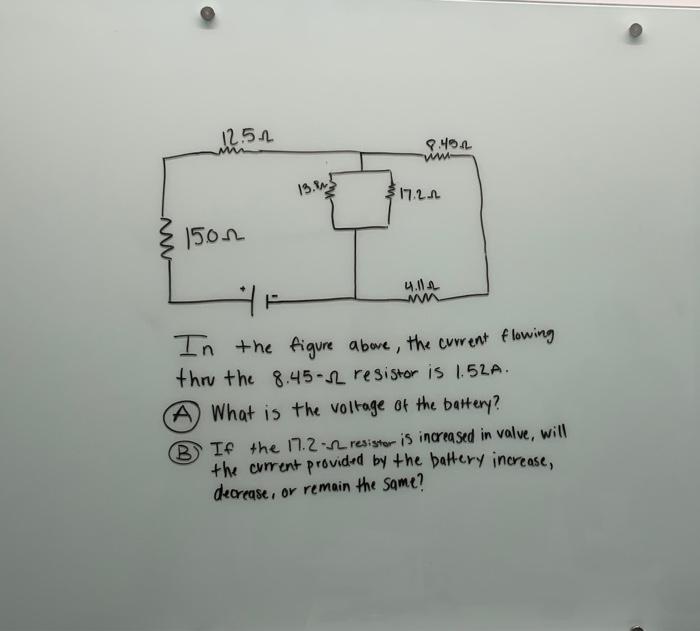 12.5Ω
8.45Ω
13.8Ω
17.2Ω
15.0Ω
4.11Ω
+
-
In the figure above, the current flowing
thru the 8.45-Ω resistor is 1.52A.
A What is the voltage of the battery?
B If the 17.2-Ω resistor is increased in valve, will
the current provided by the battery increase,
decrease, or remain the same?